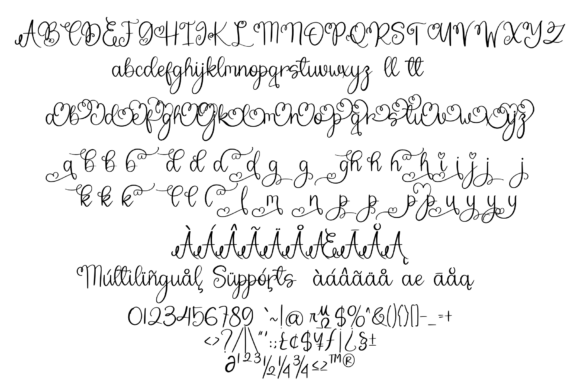 ABCDEFGHIJKLMNOPQRSTUVWXYZ
abcdefghijklmnopqrstuvwxyz ll tt
abcdefghijklmnopqrstuvwxyz
q b b b d d d d g g gh h h h i i j j j
k k k l l l l m n p p p p u y y y
ÀÁÂÃÄÅÆĀÅĄ
Múltilíñguåļ Süppórts àáâãäå ae āåą
0123456789 `~|@ πµΩ $%^&(){}[]-_=+
<>?/|\"':;£¢$¥ƒ|¿§±
∂¹²³½¼¾≤²™®